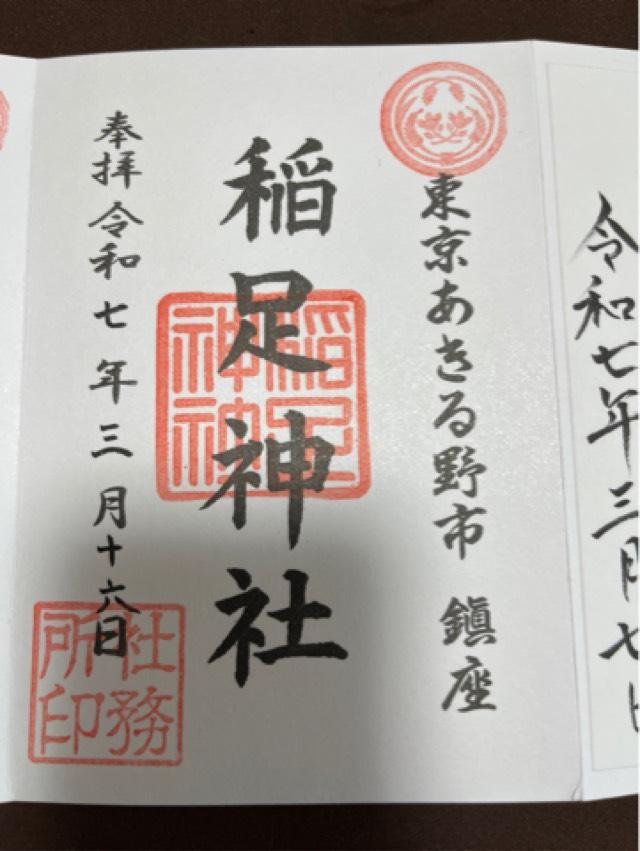 令和七年三月七日
東京あきる野市 鎮座
稲足神社
稲足神社
奉拝 令和七年三月十六日
社務所印